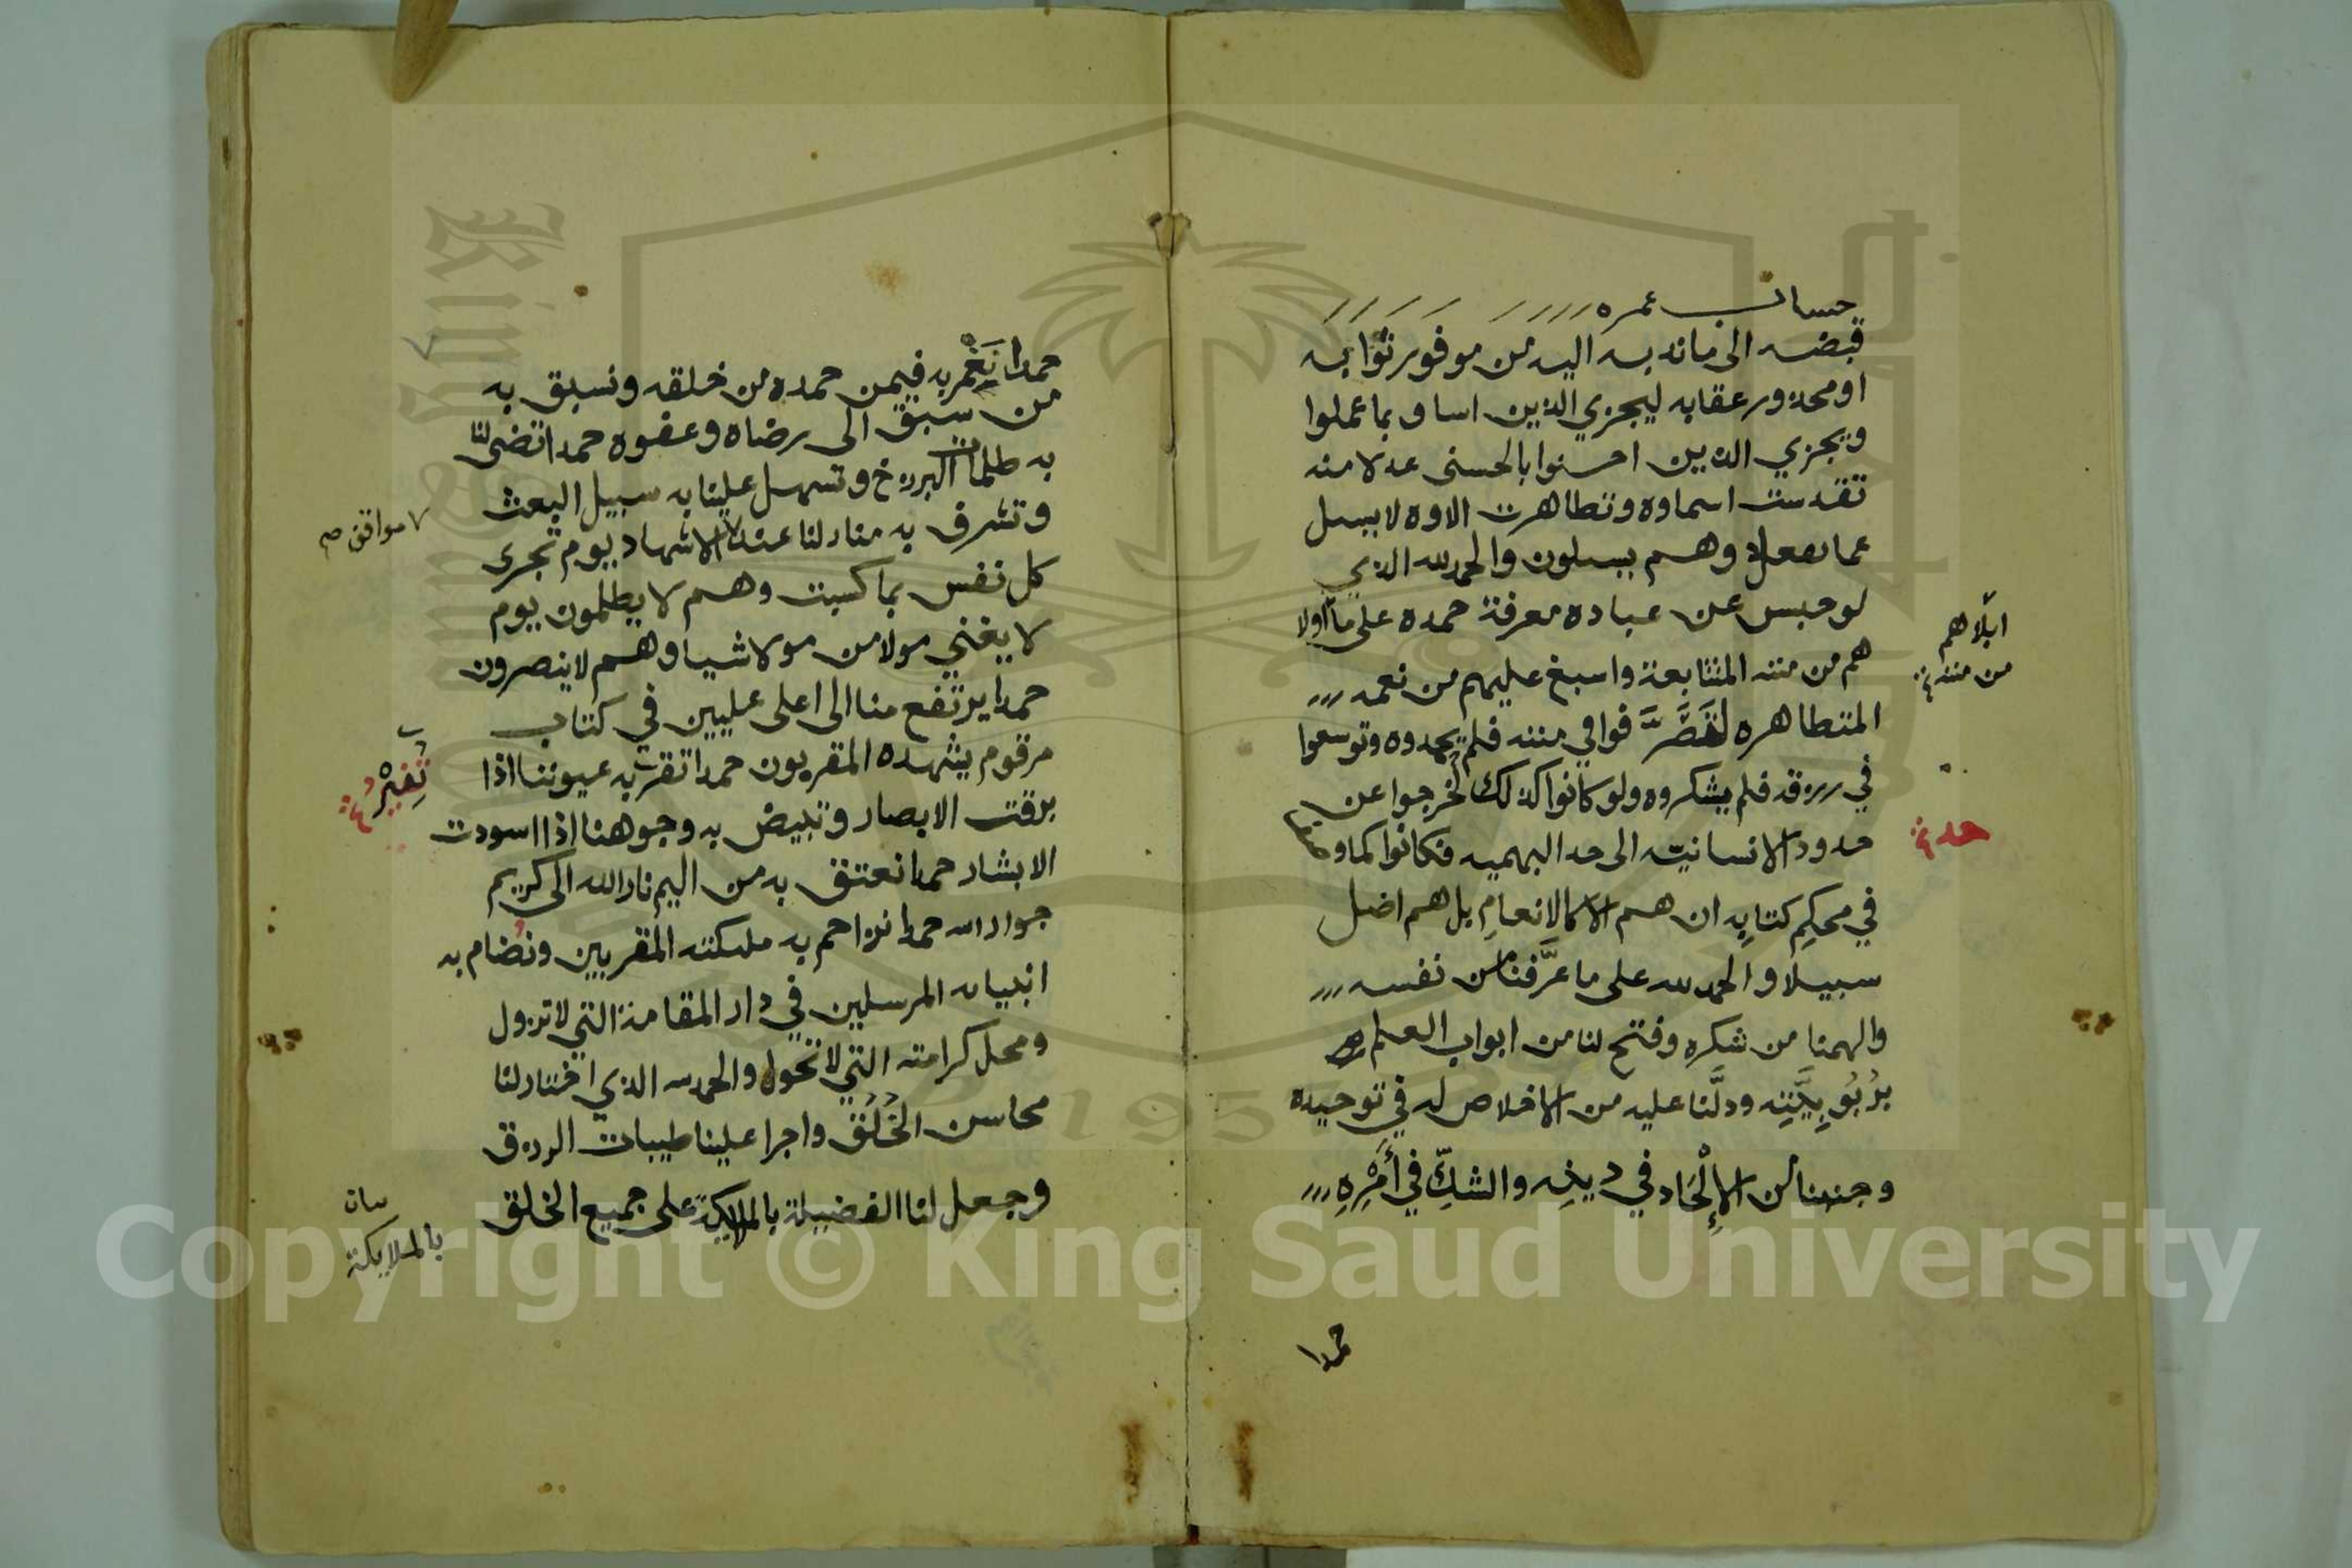 حساب عمره
قبضه الى ما ندبه اليه من موفور ثوابه
او محذور عقابه ليجزي الذين اساو بما عملوا
ويجزي الذين احسنوا بالحسنى عدلا منه
تقدست اسماوه وتظاهرت الاوه لا يسل
عما يفعل وهم يسلون والحمد لله الذي
لو حبس عن عباده معرفة حمده على ما اولا
هم من مننه المتتابعة واسبغ عليهم من نعمه
المتظاهره لتصرفوا في مننه فلم يحمدوه وتوسعوا
في رزقه فلم يشكروه ولو كانوا كذلك لخرجوا عن
حدود الانسانية الى حد البهميه فكانوا كما وصف
في محكم كتابه ان هم الا كالانعام بل هم اضل
سبيلا والحمد لله على ما عرّفنا من نفسه
والهمنا من شكره وفتح لنا من ابواب العلم
بربوبيّته ودلّنا عليه من الاخلاص له في توحيده
وجنبنا من الإلْحَاد في دينه والشكّ في أَمْرِهِ
حمدا
ابلاهم
من مننه
حد
حمدا نَعْمر به فيمن حمده من خلقه ونسبق به
من سبق الى رضاه وعفوه حمدا تضى لنا
به ظلمات البرزخ وتسهل علينا به سبيل البعث
وتشرف به منازلنا عند الاشهاد يوم تجزى
كل نفس بما كسبت وهم لا يظلمون يوم
لا يغني مولا من مولا شيا وهم لا ينصرون
حمدا يرتفع منا الى اعلى عليين في كتاب
مرقوم يشهده المقربون حمدا تقر به عيوننا اذا
برقت الابصار وتبيض به وجوهنا اذا اسودت
الابشار حمدا نعتق به من اليم نار الله الى كريم
جوار الله حمدا نزاحم به ملىكته المقربين ونُضام به
انبياه المرسلين في دار المقامة التي لا تزول
ومحل كرامته التي لا تحول والحمد لله الذي اختار لنا
محاسن الخُلُق واجرا علينا طيبات الرزق
وجعل لنا الفضيلة بالملايكة على جميع الخلق
مواقف صح
بالملايكة